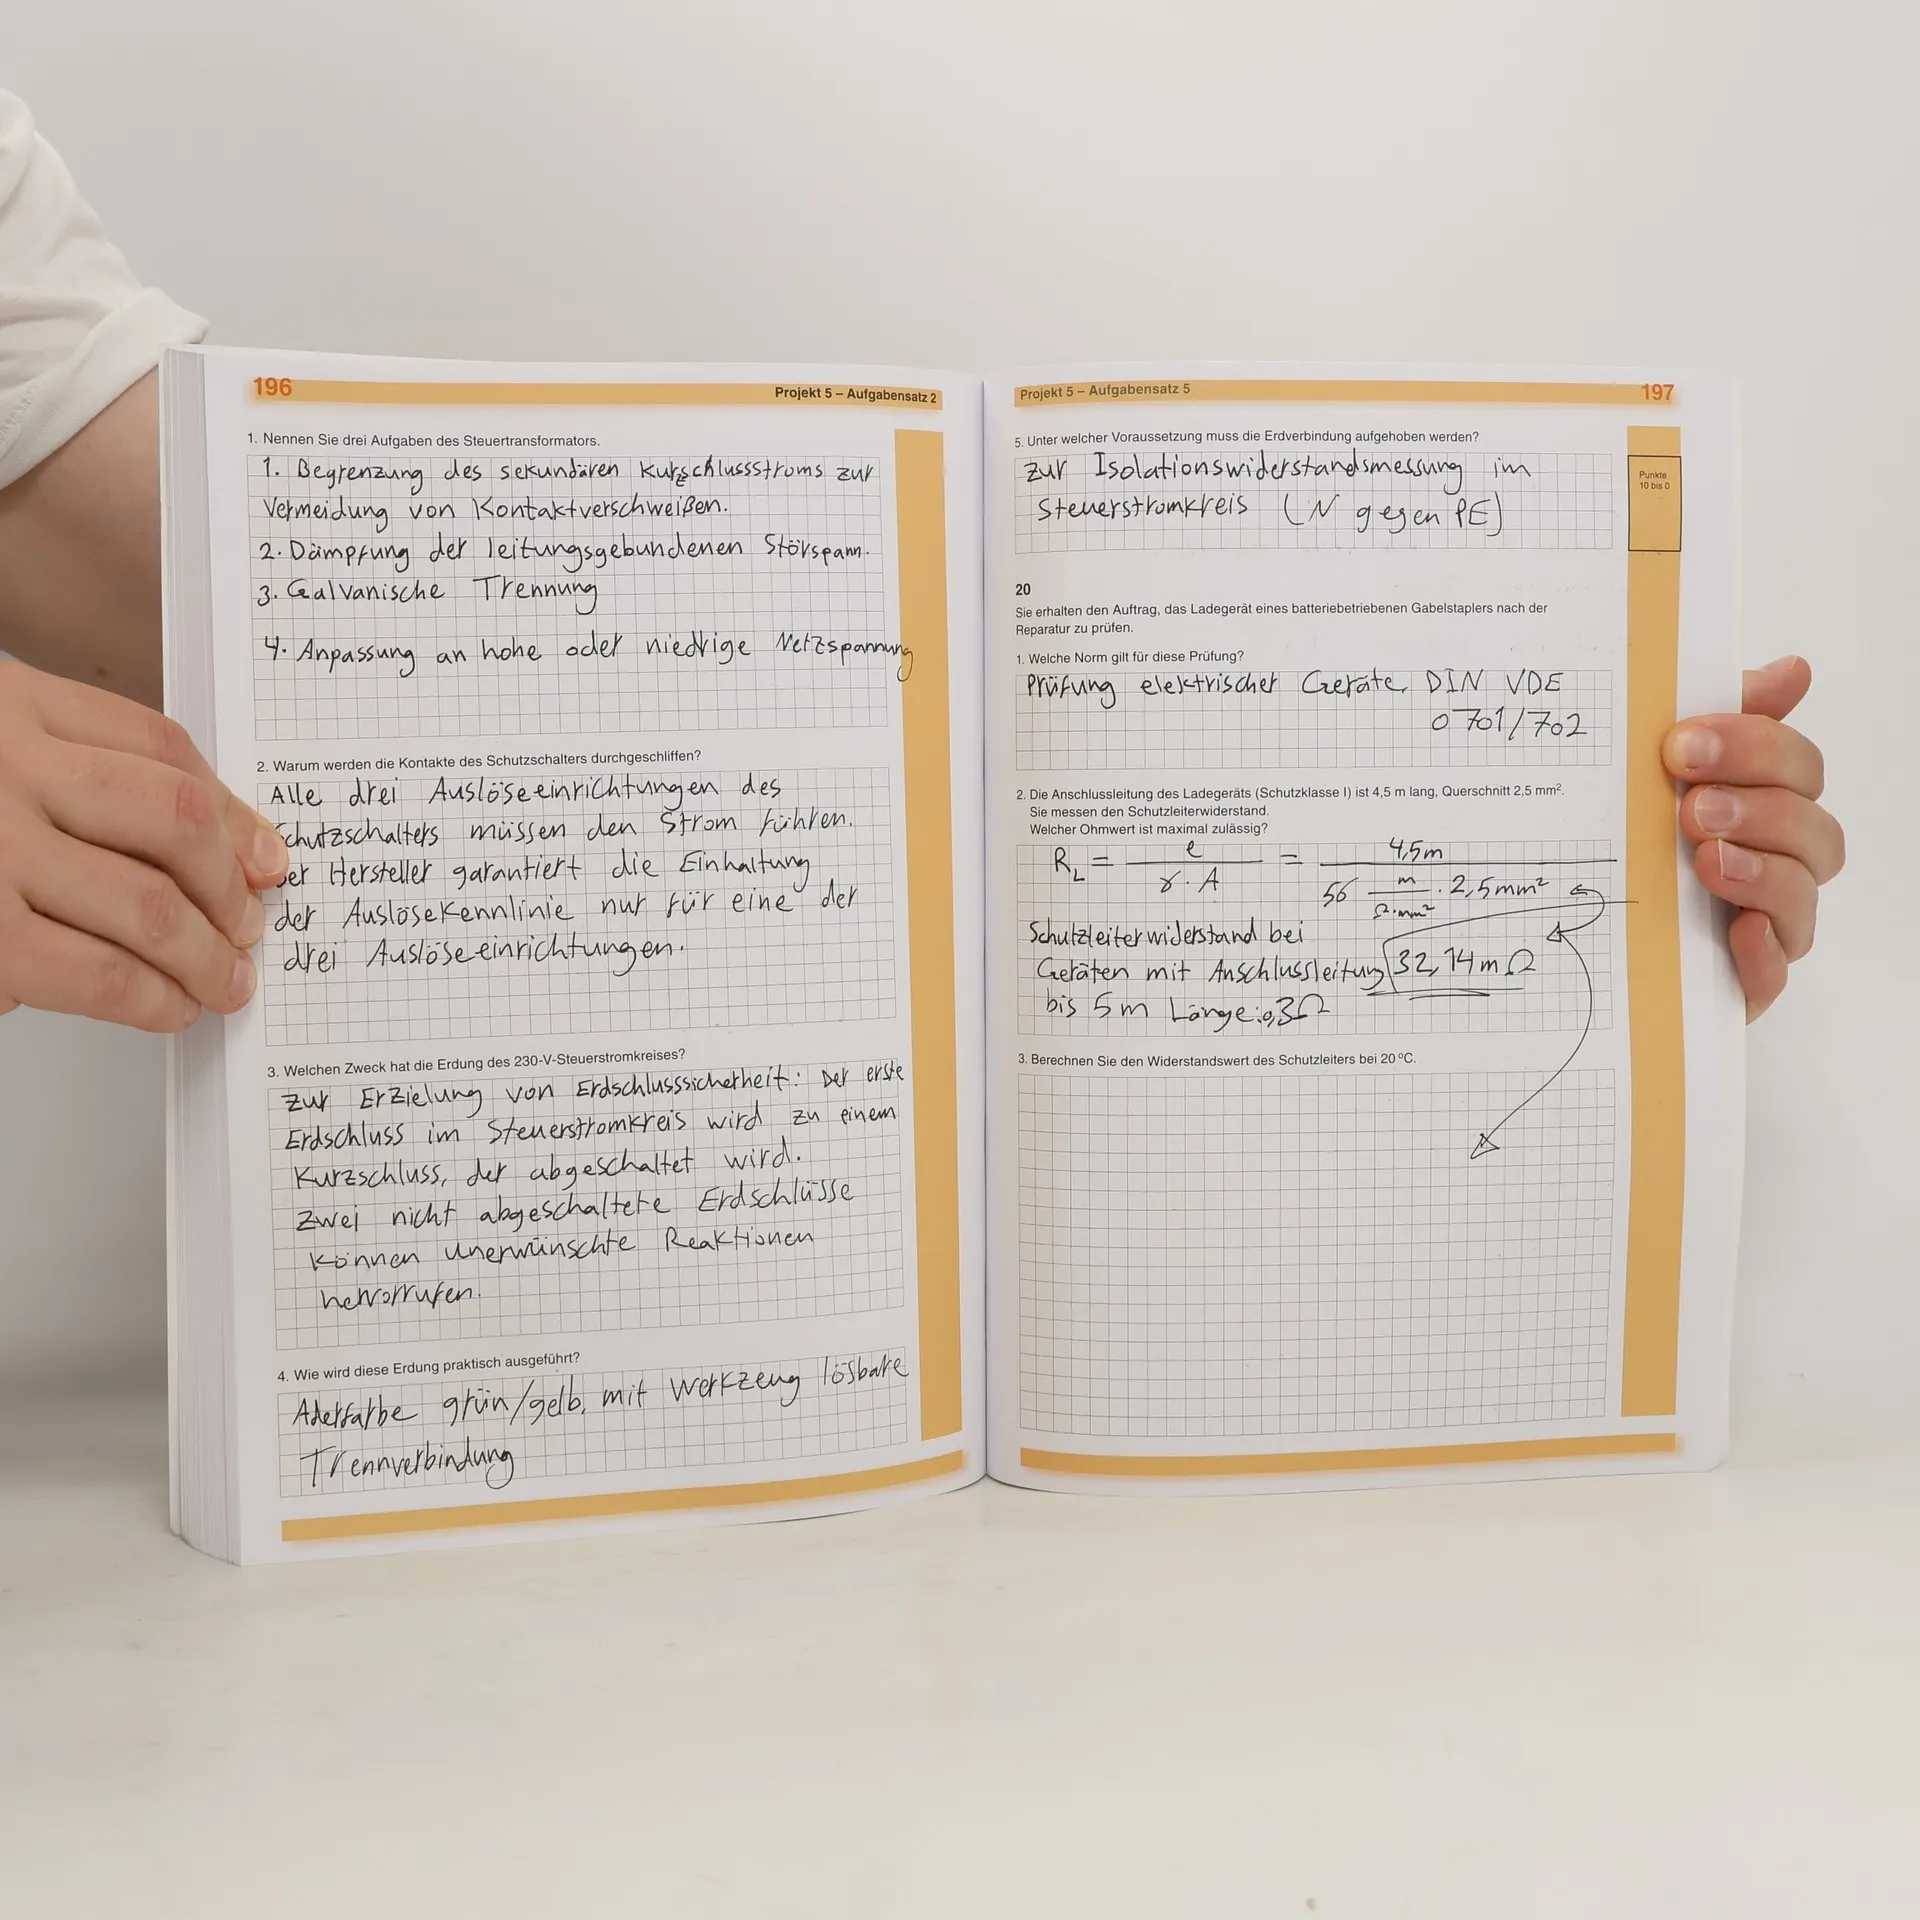 196
Projekt 5 – Aufgabensatz 2
1. Nennen Sie drei Aufgaben des Steuertransformators.
1. Begrenzung des sekundären Kurzschlussstroms zur
Vermeidung von Kontaktverschweißen.
2. Dämpfung der leitungsgebundenen Störspann.
3. Galvanische Trennung
4. Anpassung an hohe oder niedrige Netzspannung
2. Warum werden die Kontakte des Schutzschalters durchgeschliffen?
Alle drei Auslöseeinrichtungen des
chutzschalters müssen den Strom führen.
er Hersteller garantiert die Einhaltung
der Auslösekennlinie nur für eine der
drei Auslöseeinrichtungen.
3. Welchen Zweck hat die Erdung des 230-V-Steuerstromkreises?
zur Erzielung von Erdschlusssicherheit: Der erste
Erdschluss im Steuerstromkreis wird zu einem
Kurzschluss, der abgeschaltet wird.
Zwei nicht abgeschaltete Erdschlüsse
können unerwünschte Reaktionen
hervorrufen.
4. Wie wird diese Erdung praktisch ausgeführt?
Aderfarbe grün/gelb, mit Werkzeug lösbare
Trennverbindung
Projekt 5 – Aufgabensatz 5
197
5. Unter welcher Voraussetzung muss die Erdverbindung aufgehoben werden?
zur Isolationswiderstandsmessung im
Steuerstromkreis (N gegen PE)
Punkte
10 bis 0
20
Sie erhalten den Auftrag, das Ladegerät eines batteriebetriebenen Gabelstaplers nach der
Reparatur zu prüfen.
1. Welche Norm gilt für diese Prüfung?
Prüfung elektrischer Geräte, DIN VDE
0701/702
2. Die Anschlussleitung des Ladegeräts (Schutzklasse I) ist 4,5 m lang, Querschnitt 2,5 mm².
Sie messen den Schutzleiterwiderstand.
Welcher Ohmwert ist maximal zulässig?
R_L = l / (γ · A) = 4,5m / (56 m/(Ω·mm²) · 2,5mm²)
Schutzleiterwiderstand bei
Geräten mit Anschlussleitung 32,14mΩ
bis 5m Länge: 0,3Ω
3. Berechnen Sie den Widerstandswert des Schutzleiters bei 20 °C.